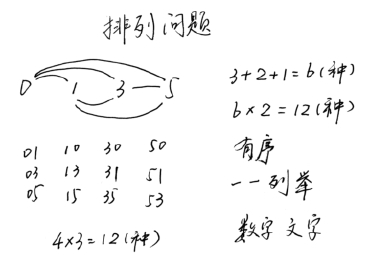 排列问题
0 1 3 5
3+2+1=6(种)
6×2=12(种)
01 10 30 50
03 13 31 51
05 15 35 53
有序
一一列举
4×3=12(种)
数字 文字